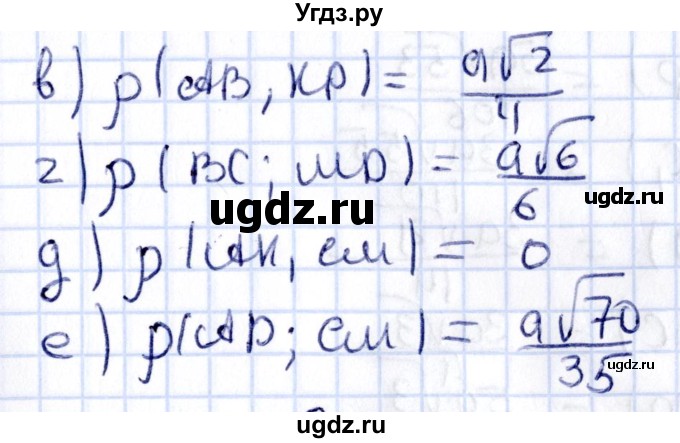 Угдз.ру
в) ρ(AB, KP) = a√2/4
г) ρ(BC; MD) = a√6/6
ugdz.ru
ugdz.ru
д) ρ(AK, CM) = 0
е) ρ(AD; CM) = a√70/35
ugdz.ru